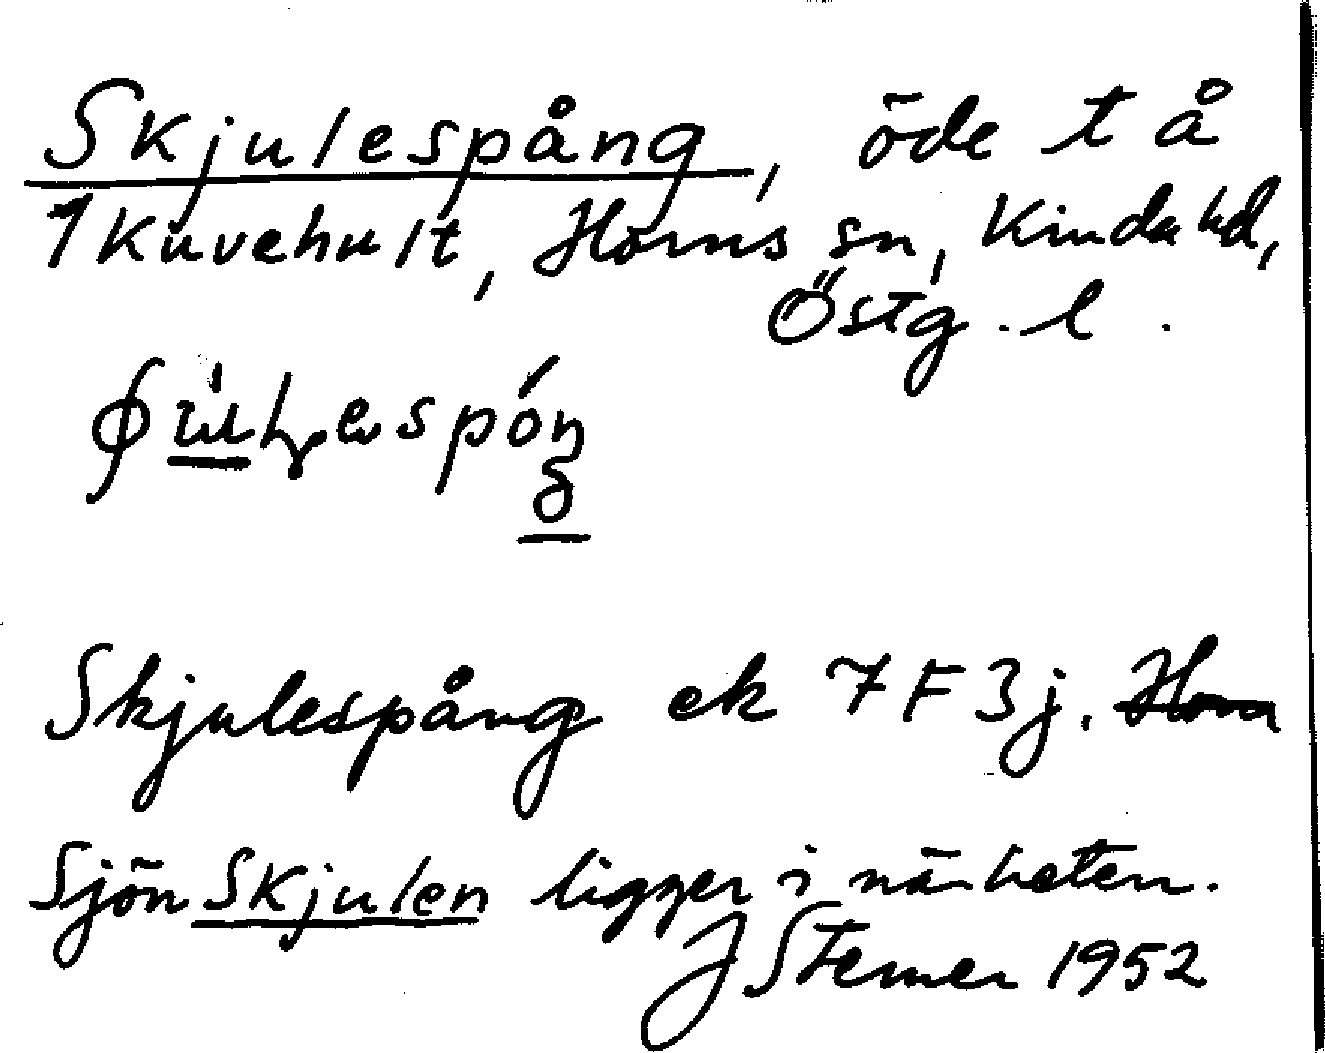 Skjulespång, öde t å
1 Kuvehult, Horns sn, Kinda hd,
Östg. l.
Skjulespång ek 7F3j.
Sjön Skjulen ligger i närheten.
J Sterner 1952